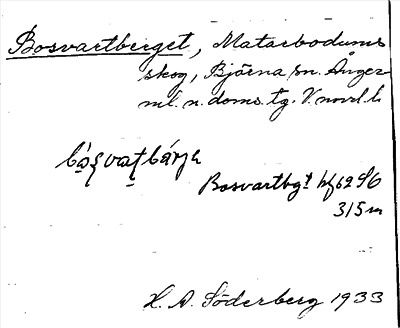 Bosvartberget, Matarbodums
skog, Björna sn. Ånger
ml. n. doms. tg. V. norrl. l.
Bosvartbgt hf 62 S6
315 m
H. A. Söderberg 1933